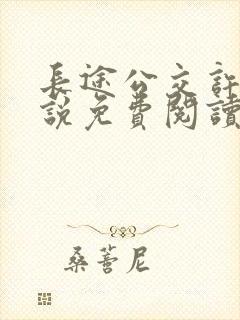 長途公交訐
說免費閱讀
桑蓍尼